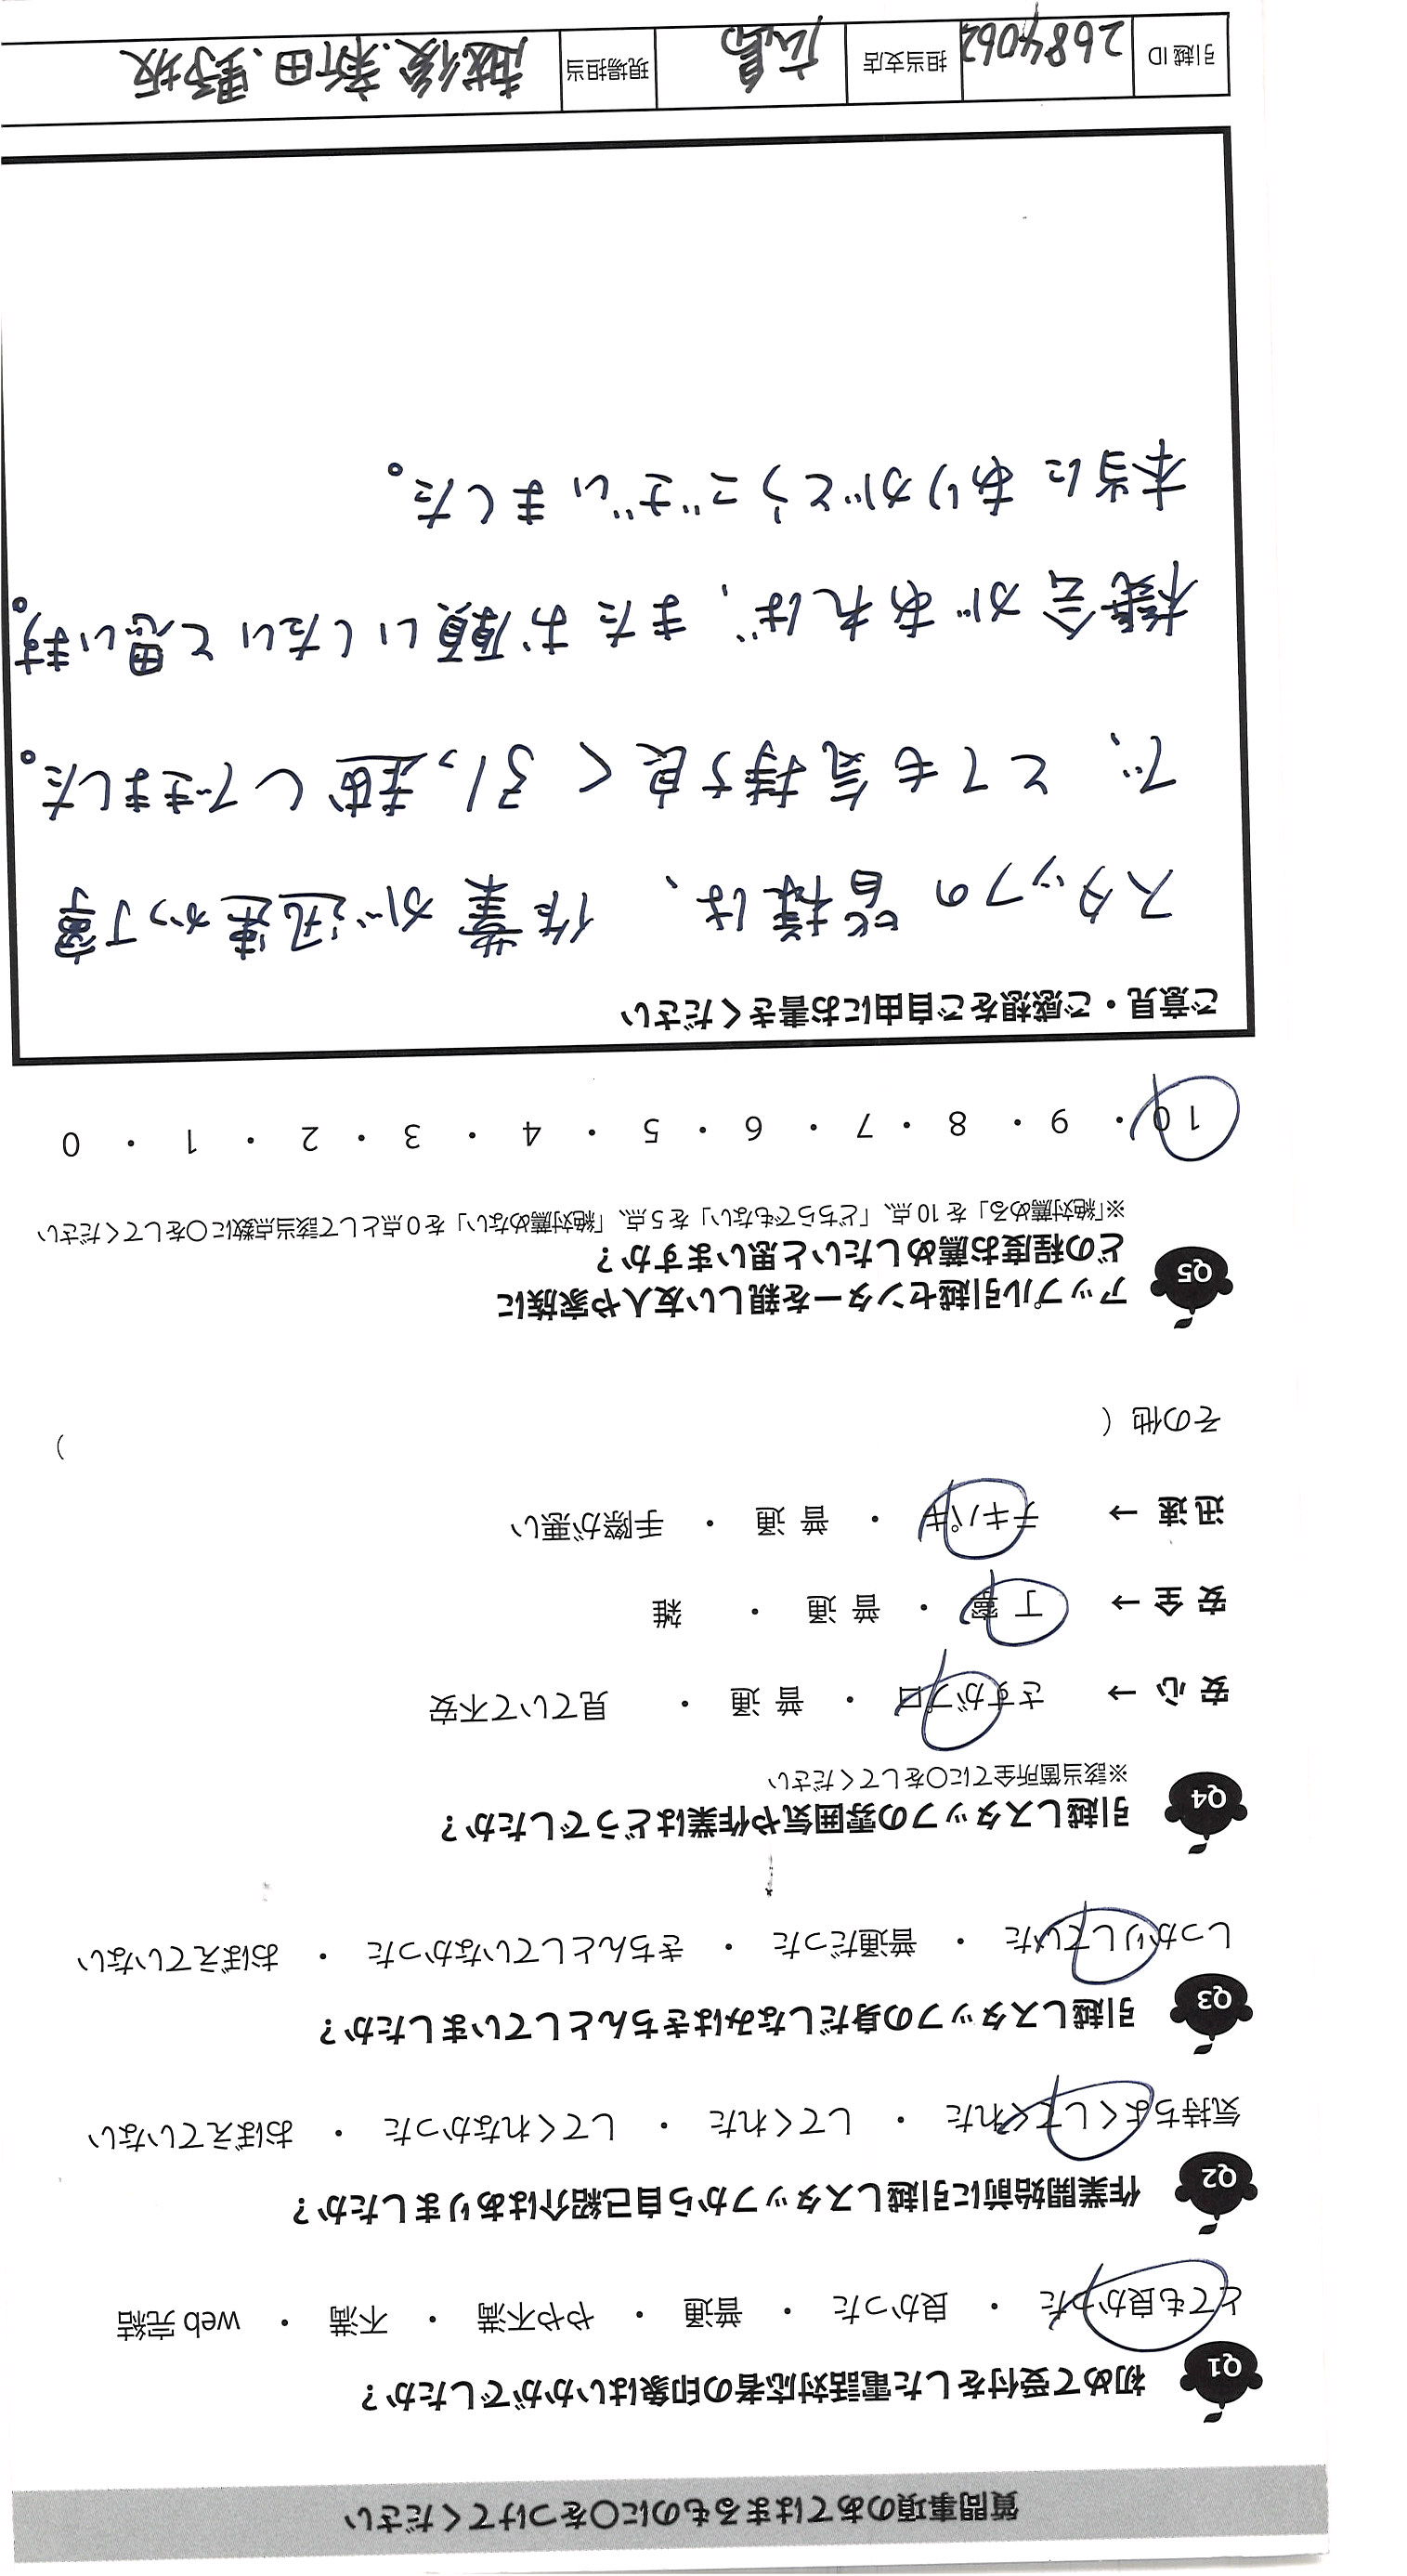 質問事項のあてはまるものに〇をつけてください
Q1 初めて受付をした電話対応者の印象はいかがでしたか？
とても良かった ・ 良かった ・ 普通 ・ やや不満 ・ 不満 ・ web 完結
Q2 作業開始前に引越しスタッフから自己紹介はありましたか？
気持ちよくしてくれた ・ してくれた ・ してくれなかった ・ おぼえていない
Q3 引越しスタッフの身だしなみはきちんとしていましたか？
しっかりしていた ・ 普通だった ・ きちんとしていなかった ・ おぼえていない
Q4 引越しスタッフの雰囲気や作業はどうでしたか？
※該当箇所全てに〇をしてください
安 心 → さすがプロ ・ 普 通 ・ 見ていて不安
安 全 → 丁 寧 ・ 普 通 ・ 雑
迅 速 → テキパキ ・ 普 通 ・ 手際が悪い
その他（ ）
Q5 アップル引越センターを親しい友人や家族に
どの程度お薦めしたいと思いますか？
※「絶対薦める」を 10 点、「どちらでもない」を 5 点、「絶対薦めない」を 0 点として該当点数に〇をしてください
10 ・ 9 ・ 8 ・ 7 ・ 6 ・ 5 ・ 4 ・ 3 ・ 2 ・ 1 ・ 0
ご意見・ご感想をご自由にお書きください
スタッフの皆様は、作業が迅速かつ丁寧
で、とても気持ち良く引っ越しできました。
機会があれば、またお願いしたいと思います。
本当にありがとうございました。
引越 ID 2684062 担当支店 広島 現場担当 越後.新田.野坂